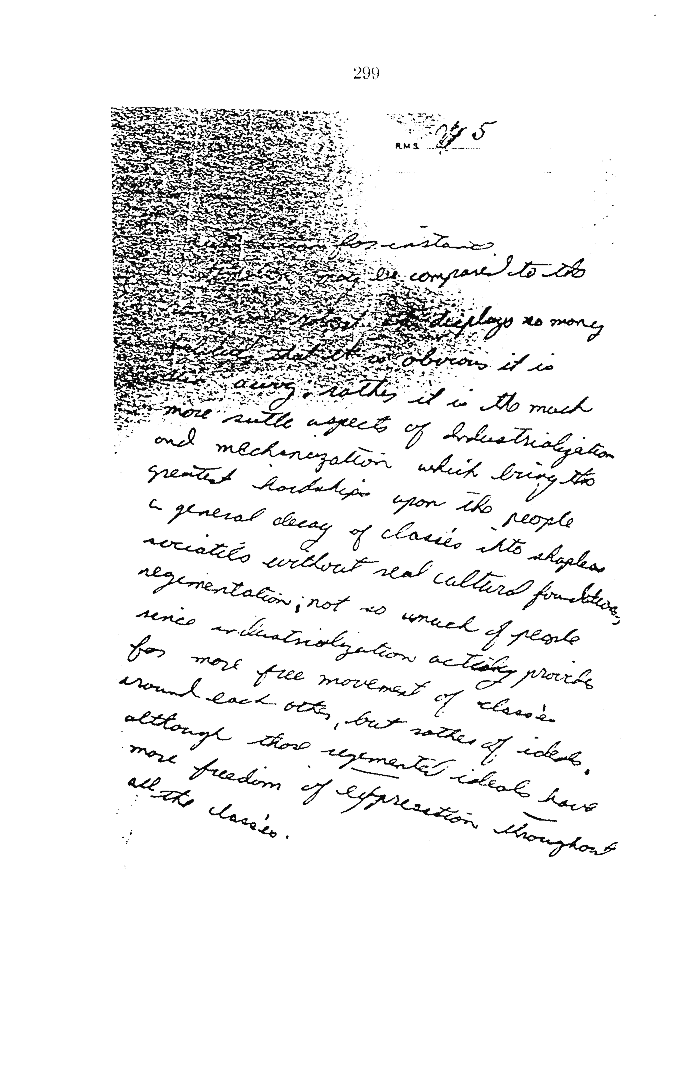 299
R.M.S. 5
for instance
may be compared to the
robot displays so many
that it is obvious it is
away, rather it is the much
more suttle aspects of Industrialization
and mechanization which bring the
greatest hardships upon the people
a general decay of classes into shapless
sociatiés without real cultural foundations,
regimentation, not so much of people
since industrialization actually provides
for more free movement of classes
around each other, but rather of ideals.
although those regemented ideals have
more freedom of exppression throughout
all the classes.